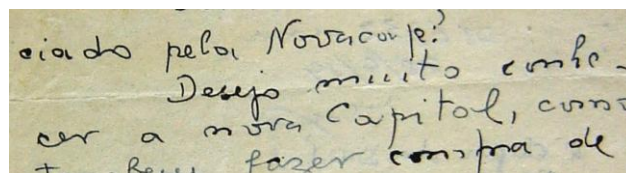 ciado pela Novacap?
Desejo muito conhe-
cer a nova Capital, como
fazer compra de